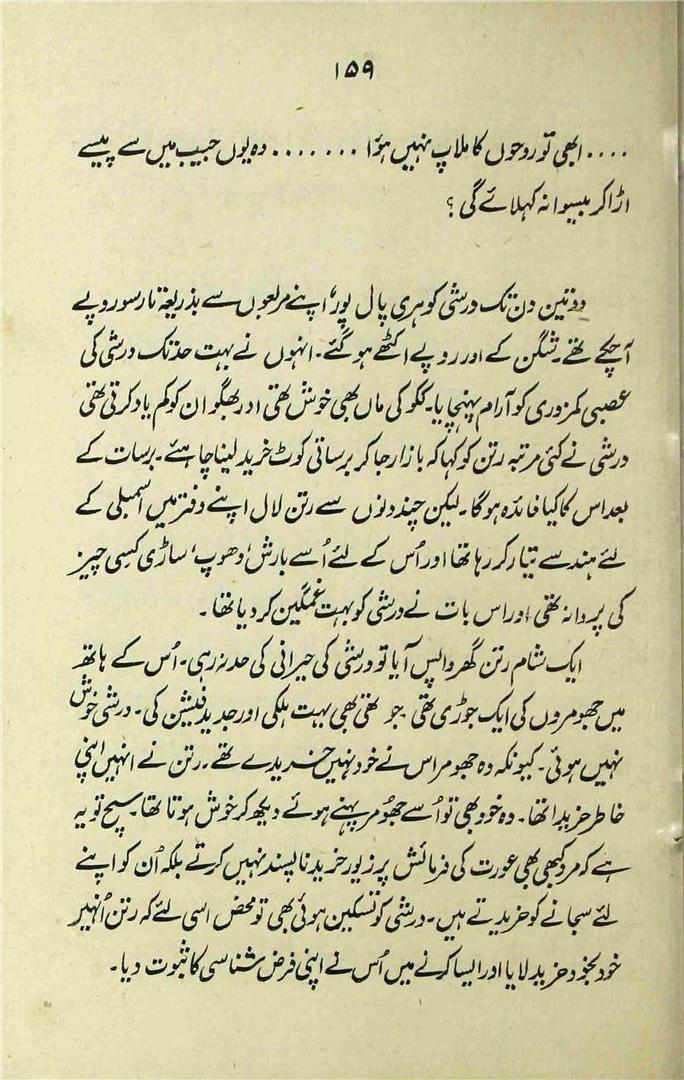 ۱۵۹
.... ابھی تو روحوں کا ملاپ نہیں ہؤا ....... وہ یوں جیب میں سے پیسے
اڑا کر بیسوا نہ کہلائے گی ؟
دو تین دن تک درشی کو ہری پال پور، اپنے مربعوں سے بذریعۂ تار سو روپے
آچکے تھے۔ شگن کے اور روپے اکٹھے ہو گئے۔ انہوں نے بہت حد تک درشی کی
عصبی کمزوری کو آرام پہنچایا۔ ککو کی ماں بھی خوش تھی اور بھگوان کو کم یاد کرتی تھی
درشی نے کئی مرتبہ رتن کو کہا کہ بازار جا کر برساتی کوٹ خرید لینا چاہئے۔ برسات کے
بعد اس کا کیا فائدہ ہوگا۔ لیکن چند دنوں سے رتن لال اپنے دفتر میں اسمبلی کے
لئے ہندسے تیار کر رہا تھا اور اُس کے لئے اُسے بارش، دھوپ، ساڑی کسی چیز
کی پروا نہ تھی اور اس بات نے درشی کو بہت غمگین کر دیا تھا۔
ایک شام رتن گھر واپس آیا تو درشی کی حیرانی کی حد نہ رہی۔ اُس کے ہاتھ
میں جھومروں کی ایک جوڑی تھی جو تھی بھی بہت ہلکی اور جدید فیشن کی۔ درشی خوش
نہیں ہوئی۔ کیونکہ وہ جھومر اس نے خود نہیں خریدے تھے۔ رتن نے انہیں اپنی
خاطر خریدا تھا۔ وہ خود بھی تو اُسے جھومر پہنے ہوئے دیکھ کر خوش ہوتا تھا۔ سچ تو یہ
ہے کہ مرد کبھی بھی عورت کی فرمائش پر زیور خریدنا پسند نہیں کرتے بلکہ اُن کو اپنے
لئے سجانے کو خریدتے ہیں۔ درشی کو تسکین ہوئی بھی تو محض اسی لئے کہ رتن اُنہیں
خود بخود خرید لایا اور ایسا کرنے میں اُس نے اپنی فرض شناسی کا ثبوت دیا۔